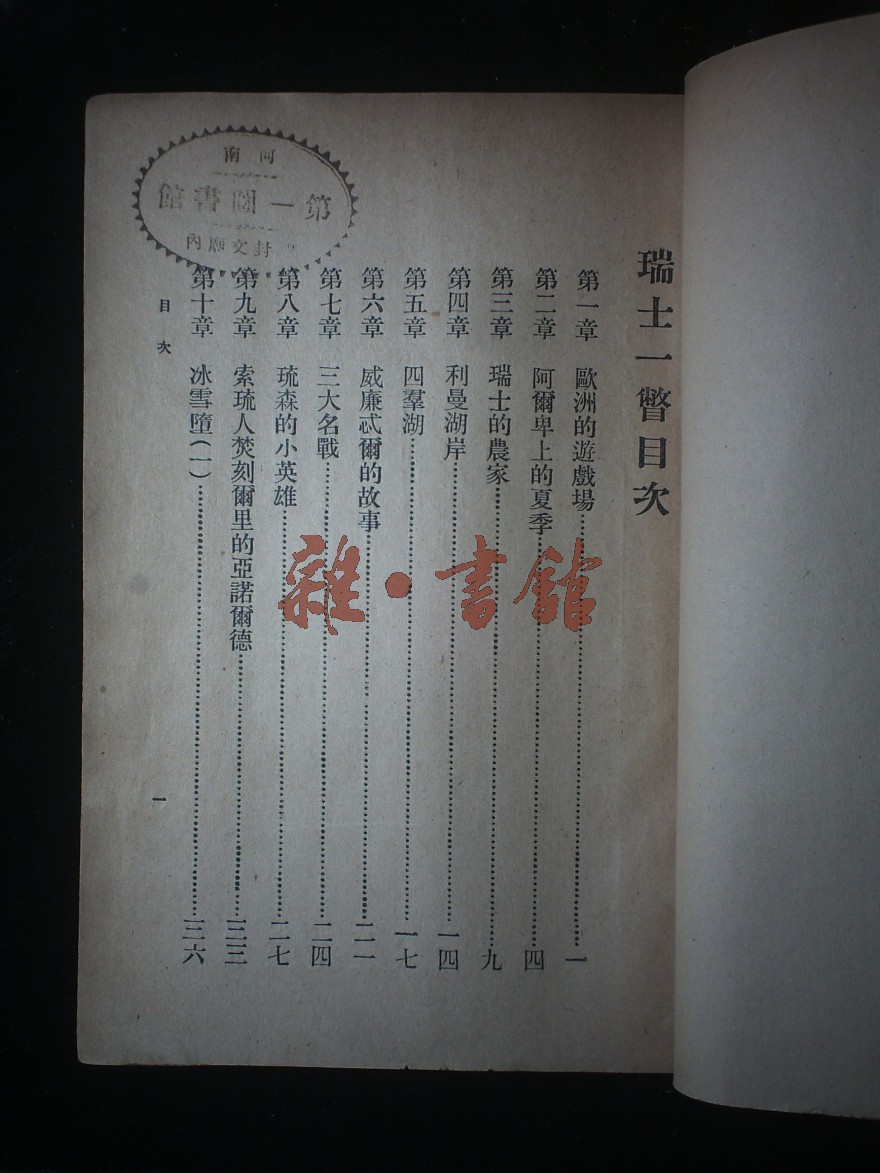 瑞士一瞥目次
第一章 歐洲的遊戲場……一
第二章 阿爾卑上的夏季……四
第三章 瑞士的農家……九
第四章 利曼湖岸……一四
第五章 四羣湖……一七
第六章 威廉忒爾的故事……二一
第七章 三大名戰……二四
第八章 琉森的小英雄……二七
第九章 索琉人焚刻爾里的亞諾爾德……三三
第十章 冰雪墮(一)……三六
目次
一
河南
第一圖書館
封文廟內
雜·書館